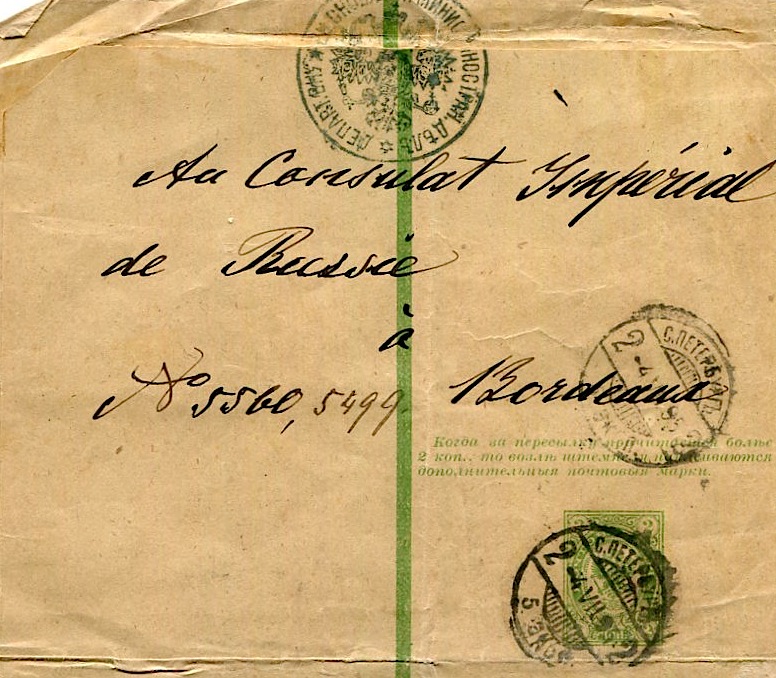 ДЕПАРТ. ДѢЛЪ
Au Consulat Impérial
de Russie
à
№ 5560, 5499. Bordeaux
С.ПЕТЕРБ
2
Когда за пересылку причитается болѣе
2 коп., то возлѣ штемпеля наклеиваются
дополнительныя почтовыя марки.
С.ПЕТЕРБ
2
4 VII
5 ЭКСП